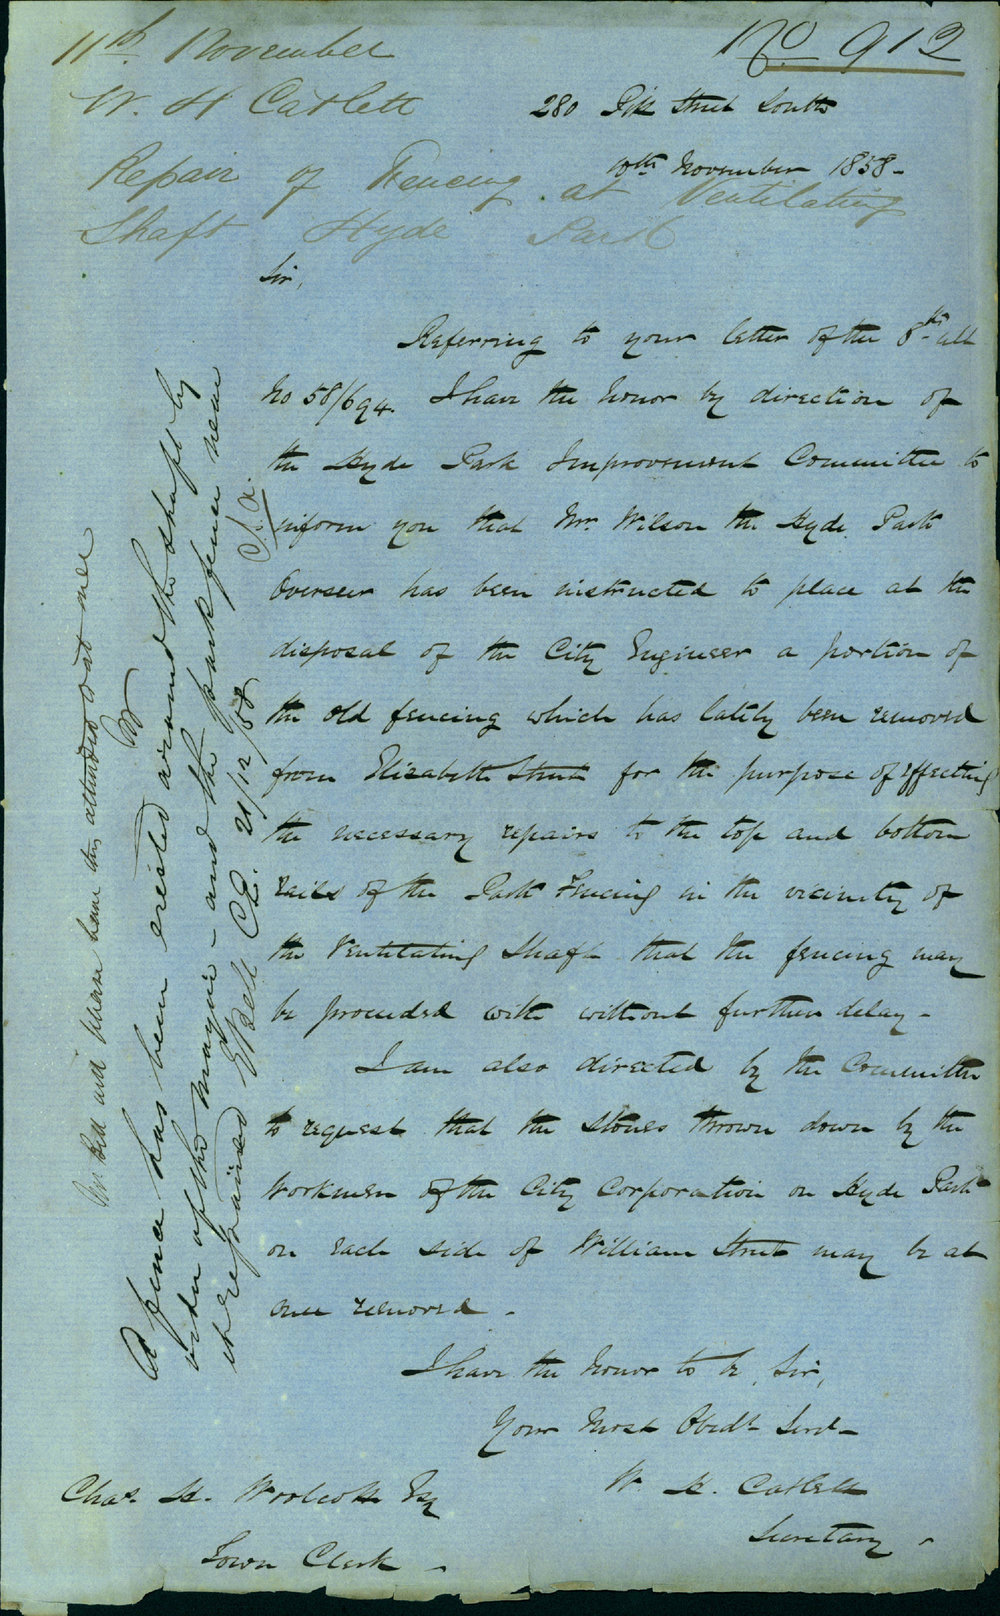 11th November
No 912
W. H Catlett
280 Pitt Street South
10th November 1858 -
Repair of Fencing at Ventilating
Shaft Hyde Park
Sir,
Referring to your letter of the 8th ult
No 58/694. I have the honor by direction of
the Hyde Park Improvement Committee to
inform you that Mr. Wilson the Hyde Park
Overseer has been instructed to place at the
disposal of the City Engineer a portion of
the old fencing which has lately been removed
from Elizabeth Street for the purpose of effecting
the necessary repairs to the top and bottom
rails of the Park Fencing in the vicinity of
the Ventilating Shaft that the fencing may
be proceeded with without further delay -
I am also directed by the Committee
to request that the Stones thrown down by the
Workmen of the City Corporation on Hyde Park
on each side of William Street may be at
once removed -
I have the honor to be, Sir,
Your Most Obedt Servt -
W. H. Catlett
Secretary -
Chas. H. Woolcott Esq
Town Clerk -
Mr Bell will please have this attended to at once
W
A fence has been erected around the shaft by
order of the mayor - and the park fence near
it repaired EBell C.E. 21/12/58